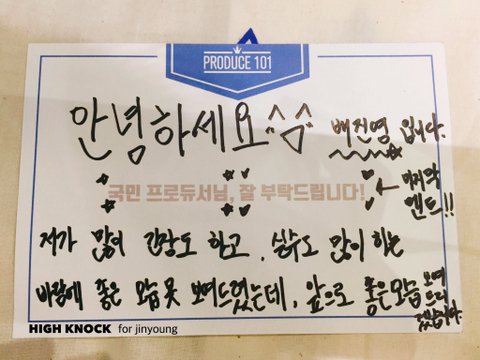 PRODUCE 101
안녕하세요^^
배진영 입니다.
국민 프로듀서님, 잘 부탁드립니다!
← 마지막
엔트!!
저가 많이 긴장도 하고, 실수도 많이 하는
바람에 좋은 모습 못 보여드렸는데, 앞으로 좋은모습 보여
드리
겠습니다.
HIGH KNOCK for jinyoung